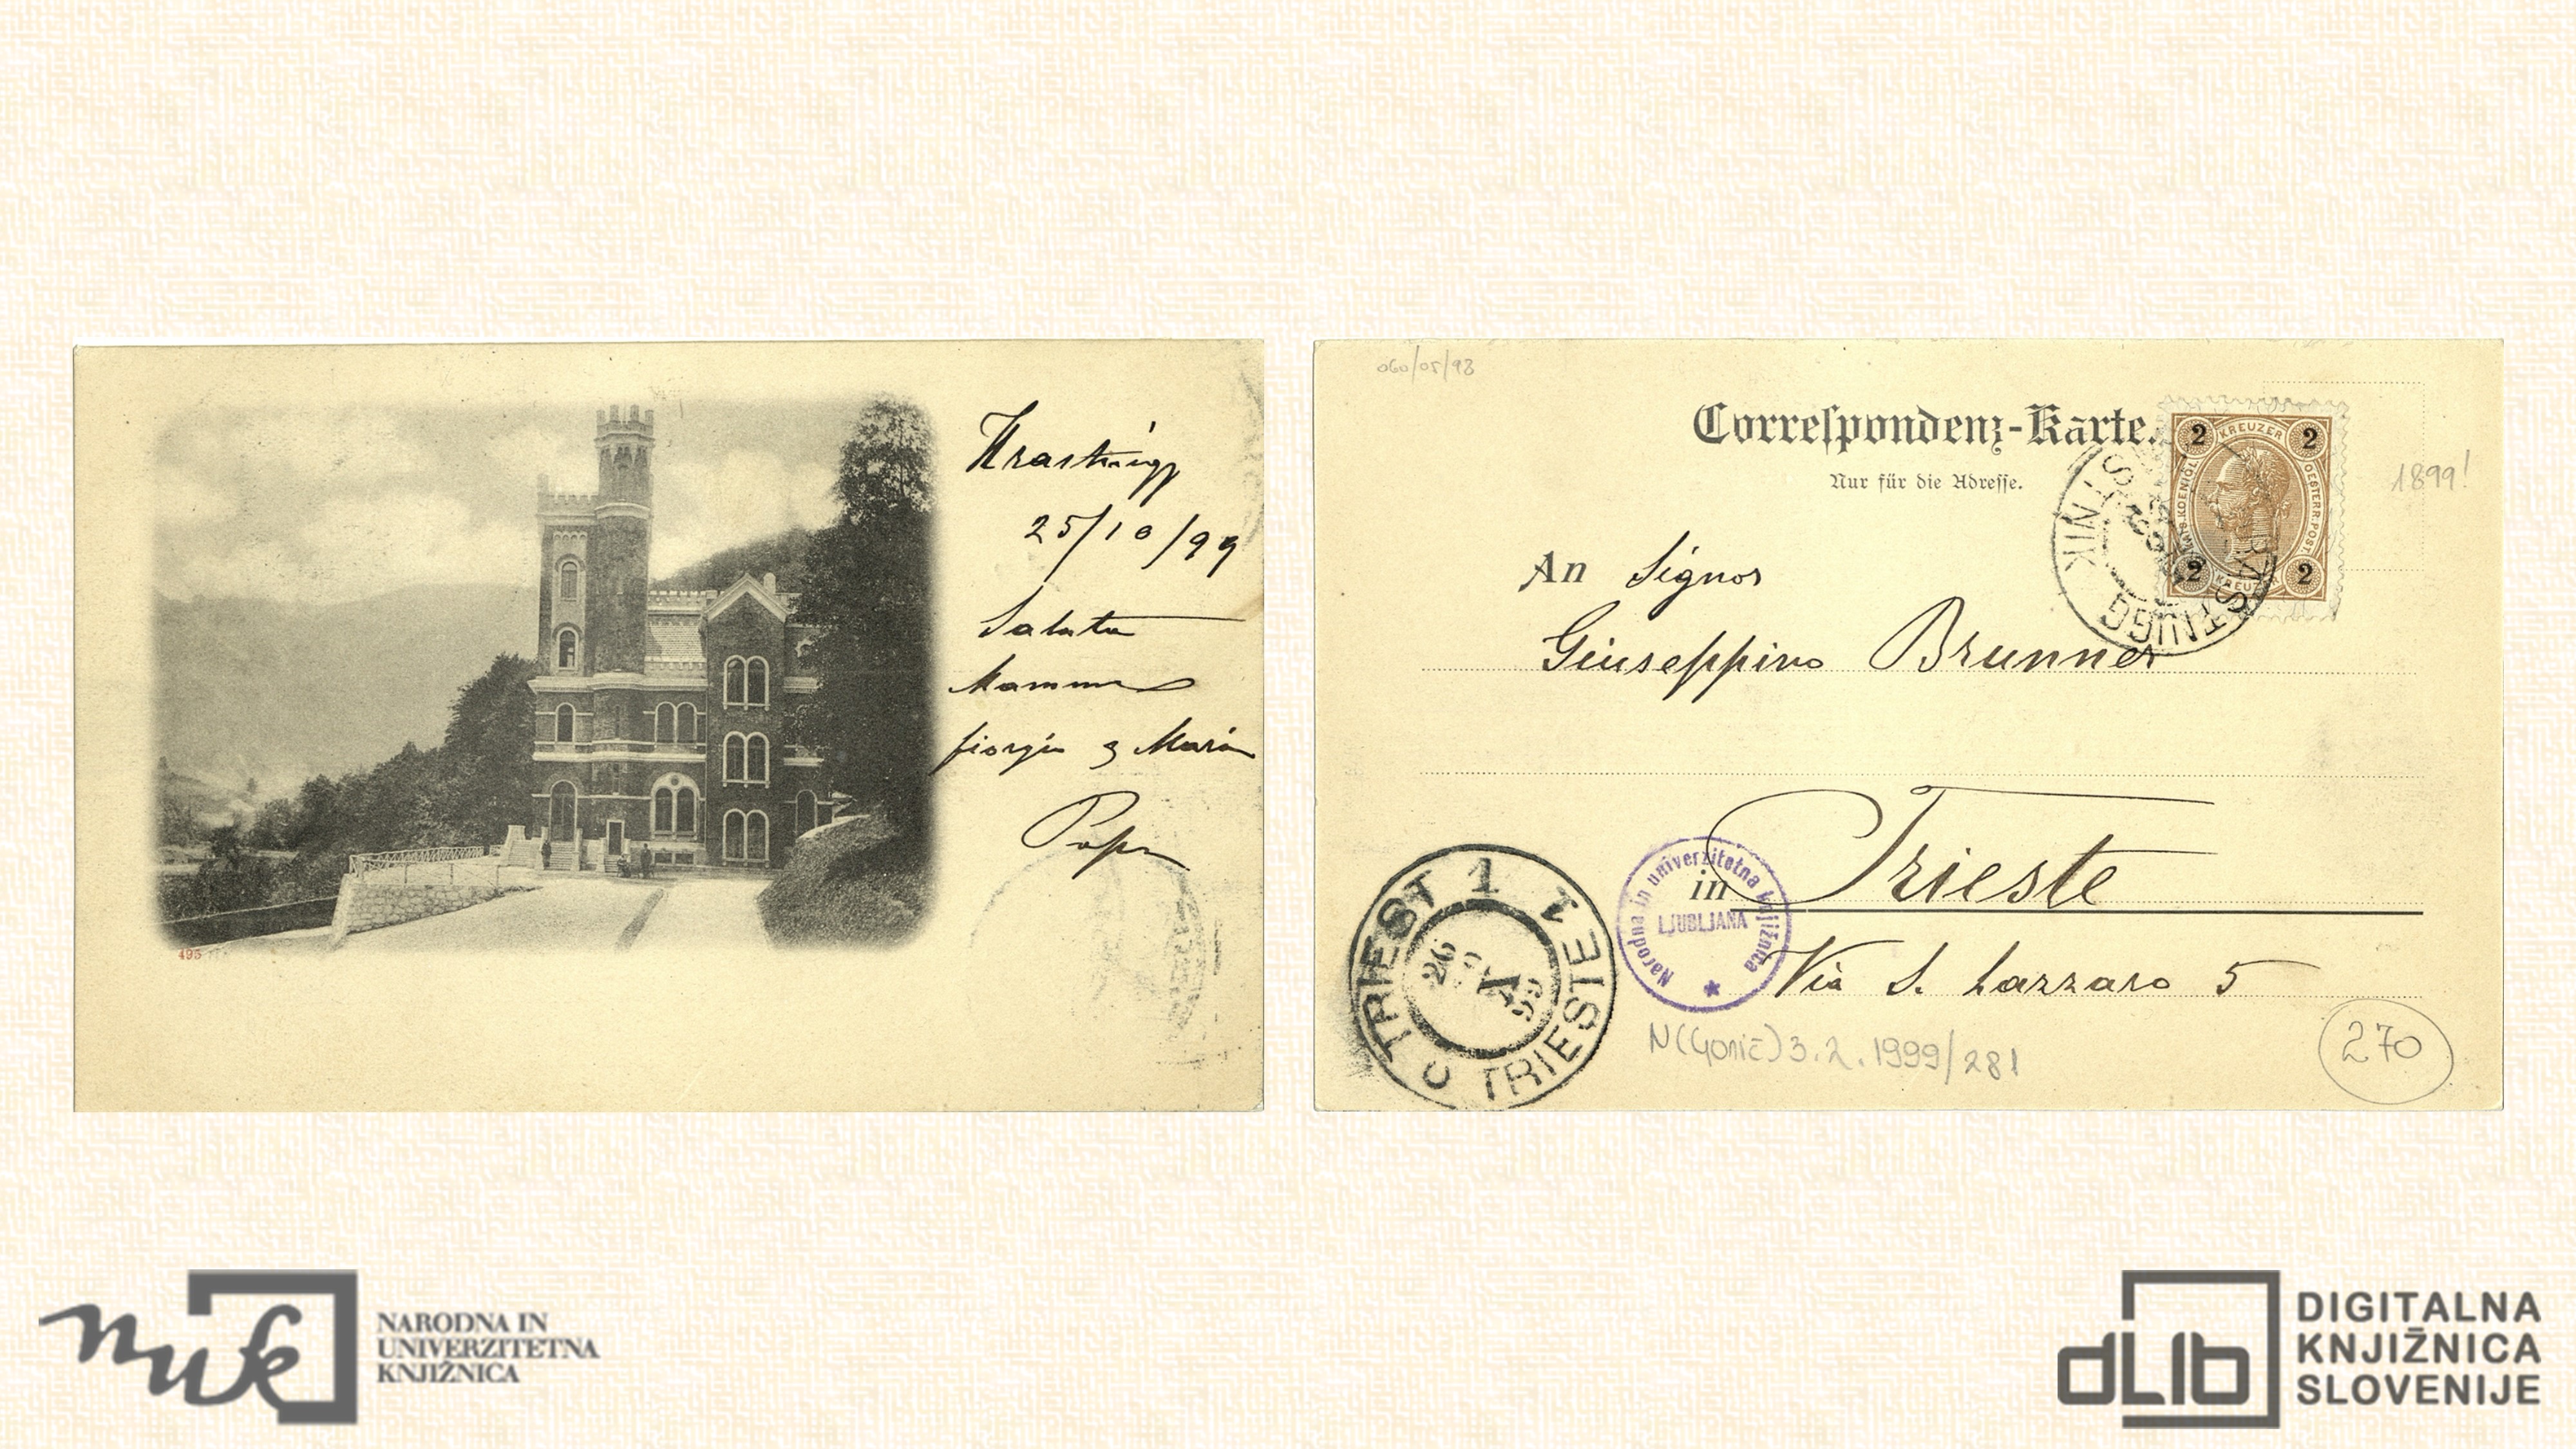 Hrastnigg
25/10/99
Saluta
Mamma
Giorgio e Maria
Papa
495
060/05/98
Correſpondenz-Karte.
Nur für die Adreſſe.
2 KREUZER 2
OESTERR. POST
2 KREUZER 2
1899!
HRASTNIGG
An Signor
Giuseppino Brunner
in Trieste
Via S. Lazzaro 5
TRIEST 1 TRIESTE 1
26
X
99
C
Narodna in univerzitetna knjižnica
LJUBLJANA
N(Gonič) 3.2.1999/281
270
nuk
NARODNA IN
UNIVERZITETNA
KNJIŽNICA
dLIb
DIGITALNA
KNJIŽNICA
SLOVENIJE